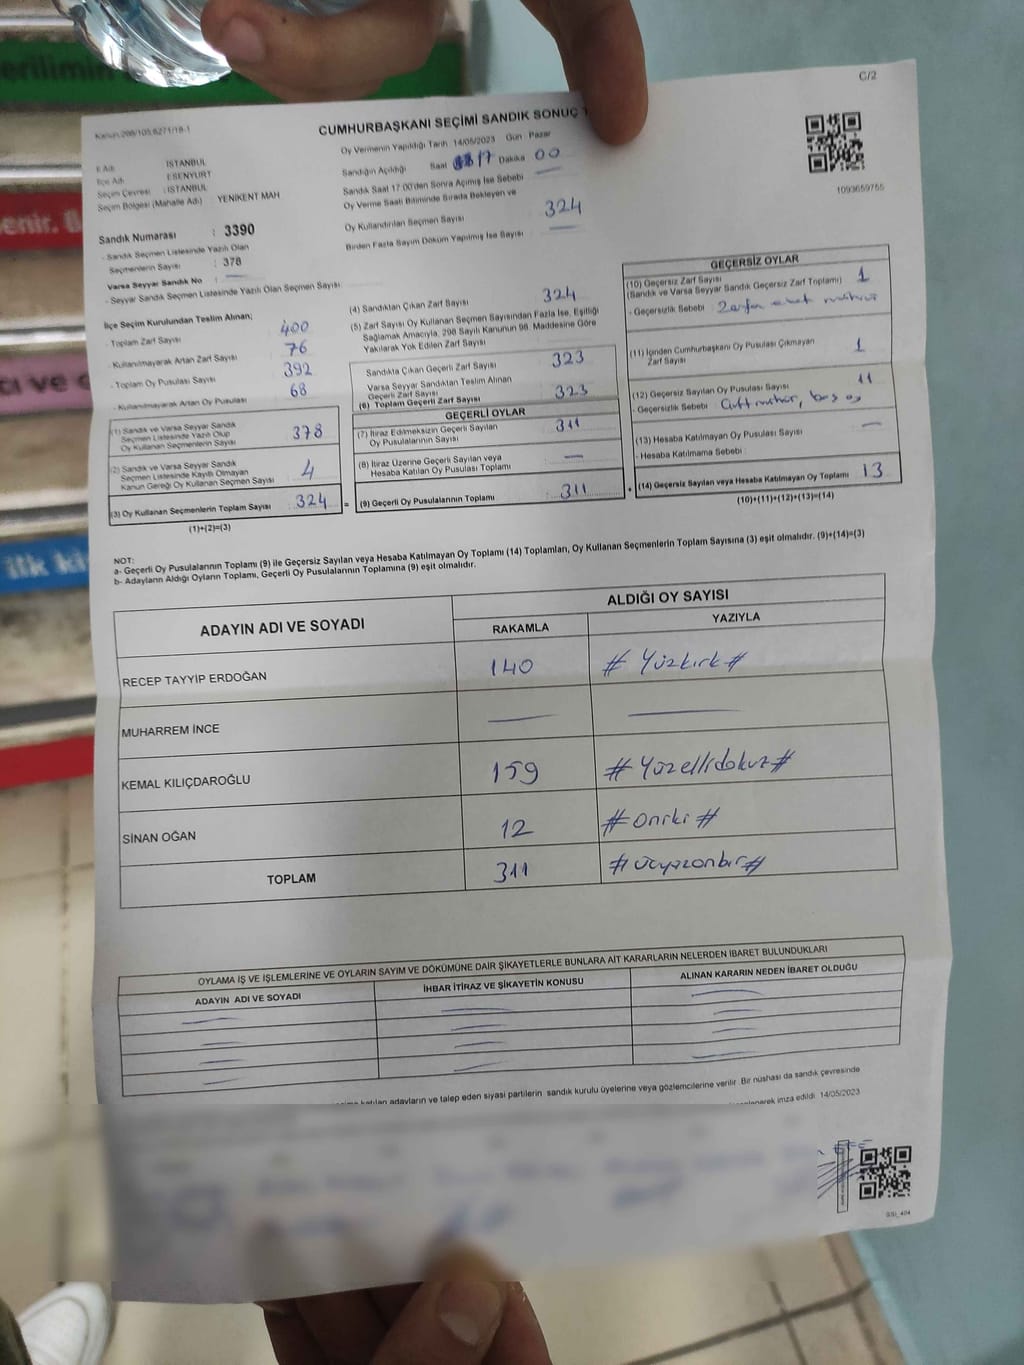 C/2
Kanun:298/105;6271/18-1
CUMHURBAŞKANI SEÇİMİ SANDIK SONUÇ
Oy Vermenin Yapıldığı Tarih 14/05/2023 Gün : Pazar
Sandığın Açıldığı Saat 17 Dakika 00
Sandık Saat 17:00'den Sonra Açımış İse Sebebi
Oy Verme Saati Bitiminde Sırada Bekleyen ve
Oy Kullandırılan Seçmen Sayısı 324
Birden Fazla Sayım Döküm Yapılmış İse Sayısı
1093659765
İl Adı : İSTANBUL
İlçe Adı : ESENYURT
Seçim Çevresi : İSTANBUL
Seçim Bölgesi (Mahalle Adı) : YENİKENT MAH
Sandık Numarası : 3390
- Sandık Seçmen Listesinde Yazılı Olan
Seçmenlerin Sayısı : 378
Varsa Seyyar Sandık No :
- Seyyar Sandık Seçmen Listesinde Yazılı Olan Seçmen Sayısı
İlçe Seçim Kurulundan Teslim Alınan;
- Toplam Zarf Sayısı 400
- Kullanılmayarak Artan Zarf Sayısı 76
- Toplam Oy Pusulası Sayısı 392
- Kullanılmayarak Artan Oy Pusulası 68
(1) Sandık ve Varsa Seyyar Sandık
Seçmen Listesinde Yazılı Olup
Oy Kullanan Seçmenlerin Sayısı 378
(2) Sandık ve Varsa Seyyar Sandık
Seçmen Listesinde Kayıtlı Olmayan
Kanun Gereği Oy Kullanan Seçmen Sayısı 4
(3) Oy Kullanan Seçmenlerin Toplam Sayısı 324 =
(1)+(2)=(3)
(4) Sandıktan Çıkan Zarf Sayısı 324
(5) Zarf Sayısı Oy Kullanan Seçmen Sayısından Fazla İse, Eşitliği
Sağlamak Amacıyla, 298 Sayılı Kanunun 98. Maddesine Göre
Yakılarak Yok Edilen Zarf Sayısı
Sandıkta Çıkan Geçerli Zarf Sayısı 323
Varsa Seyyar Sandıktan Teslim Alınan
Geçerli Zarf Sayısı
(6) Toplam Geçerli Zarf Sayısı 323
GEÇERLİ OYLAR
(7) İtiraz Edilmeksizin Geçerli Sayılan
Oy Pusulalarının Sayısı 311
(8) İtiraz Üzerine Geçerli Sayılan veya
Hesaba Katılan Oy Pusulası Toplamı
(9) Geçerli Oy Pusulalarının Toplamı : 311 +
GEÇERSİZ OYLAR
(10) Geçersiz Zarf Sayısı
(Sandık ve Varsa Seyyar Sandık Geçersiz Zarf Toplamı) 1
- Geçersizlik Sebebi :
(11) İçinden Cumhurbaşkanı Oy Pusulası Çıkmayan
Zarf Sayısı 1
(12) Geçersiz Sayılan Oy Pusulası Sayısı 11
- Geçersizlik Sebebi : Çift mühür, boş oy
(13) Hesaba Katılmayan Oy Pusulası Sayısı
- Hesaba Katılmama Sebebi :
(14) Geçersiz Sayılan veya Hesaba Katılmayan Oy Toplamı 13
(10)+(11)+(12)+(13)=(14)
NOT:
a- Geçerli Oy Pusulalarının Toplamı (9) ile Geçersiz Sayılan veya Hesaba Katılmayan Oy Toplamı (14) Toplamları, Oy Kullanan Seçmenlerin Toplam Sayısına (3) eşit olmalıdır. (9)+(14)=(3)
b- Adayların Aldığı Oyların Toplamı, Geçerli Oy Pusulalarının Toplamına (9) eşit olmalıdır.
ADAYIN ADI VE SOYADI
ALDIĞI OY SAYISI
RAKAMLA YAZIYLA
RECEP TAYYİP ERDOĞAN 140 # Yüzkırk #
MUHARREM İNCE
KEMAL KILIÇDAROĞLU 159 # Yüzellidokuz #
SİNAN OĞAN 12 # Oniki #
TOPLAM 311 # Üçyüzonbir #
OYLAMA İŞ VE İŞLEMLERİNE VE OYLARIN SAYIM VE DÖKÜMÜNE DAİR ŞİKAYETLERLE BUNLARA AİT KARARLARIN NELERDEN İBARET BULUNDUKLARI
ADAYIN ADI VE SOYADI İHBAR İTİRAZ VE ŞİKAYETİN KONUSU ALINAN KARARIN NEDEN İBARET OLDUĞU
katılan adayların ve talep eden siyasi partilerin sandık kurulu üyelerine veya gözlemcilerine verilir. Bir nüshası da sandık çevresinde
imza edildi. 14/05/2023
SSI_404
erilimin
enir.
cı ve
ilk